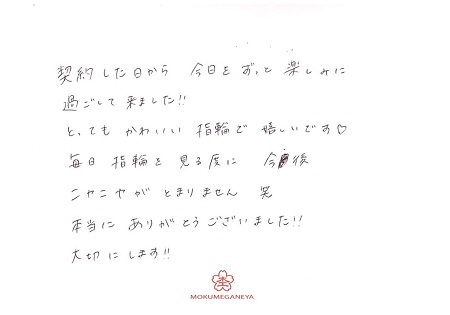 契約した日から 今日をずっと 楽しみに
過ごして来ました!!
とってもかわいい 指輪で 嬉しいです♡
毎日 指輪を見る度に 今後
ニヤニヤが とまりません 笑
本当に ありがとうございました!!
大切にします!!
MOKUMEGANEYA